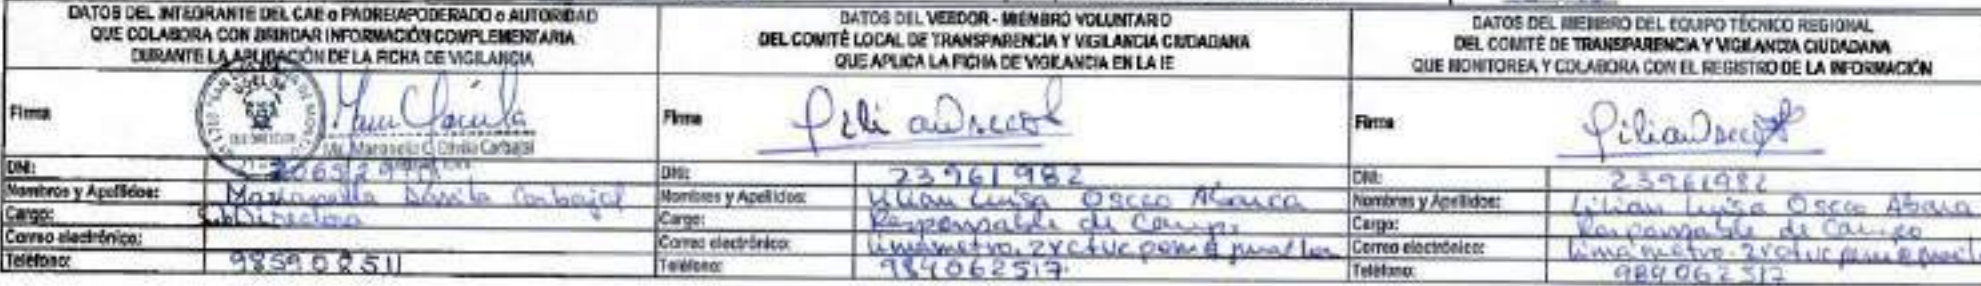 DATOS DEL INTEGRANTE DEL CAE o PADRE/APODERADO o AUTORIDAD
QUE COLABORA CON BRINDAR INFORMACIÓN COMPLEMENTARIA
DURANTE LA APLICACIÓN DE LA FICHA DE VIGILANCIA
Firma
DNI:
Nombres y Apellidos: Marianella Dávila Carbajal
Cargo: Sub Directora
Correo electrónico:
Teléfono: 985902511
DATOS DEL VEEDOR - MIEMBRO VOLUNTARIO
DEL COMITÉ LOCAL DE TRANSPARENCIA Y VIGILANCIA CIUDADANA
QUE APLICA LA FICHA DE VIGILANCIA EN LA IE
Firma
DNI: 23961982
Nombres y Apellidos: Lilian Luisa Oscco Abarca
Cargo: Responsable de Campo
Correo electrónico:
Teléfono: 984062517
DATOS DEL MIEMBRO DEL EQUIPO TÉCNICO REGIONAL
DEL COMITÉ DE TRANSPARENCIA Y VIGILANCIA CIUDADANA
QUE MONITOREA Y COLABORA CON EL REGISTRO DE LA INFORMACIÓN
Firma
DNI: 23961982
Nombres y Apellidos: Lilian Luisa Oscco Abarca
Cargo: Responsable de Campo
Correo electrónico:
Teléfono: 984062517